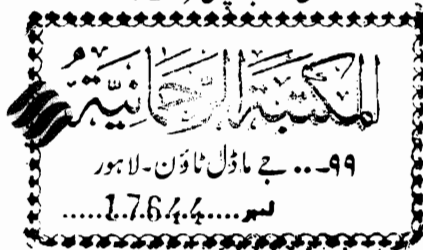 المكتبة الرحمانية
۹۹-.. جے ماڈل ٹاؤن-لاہور
نمبر....17644.....